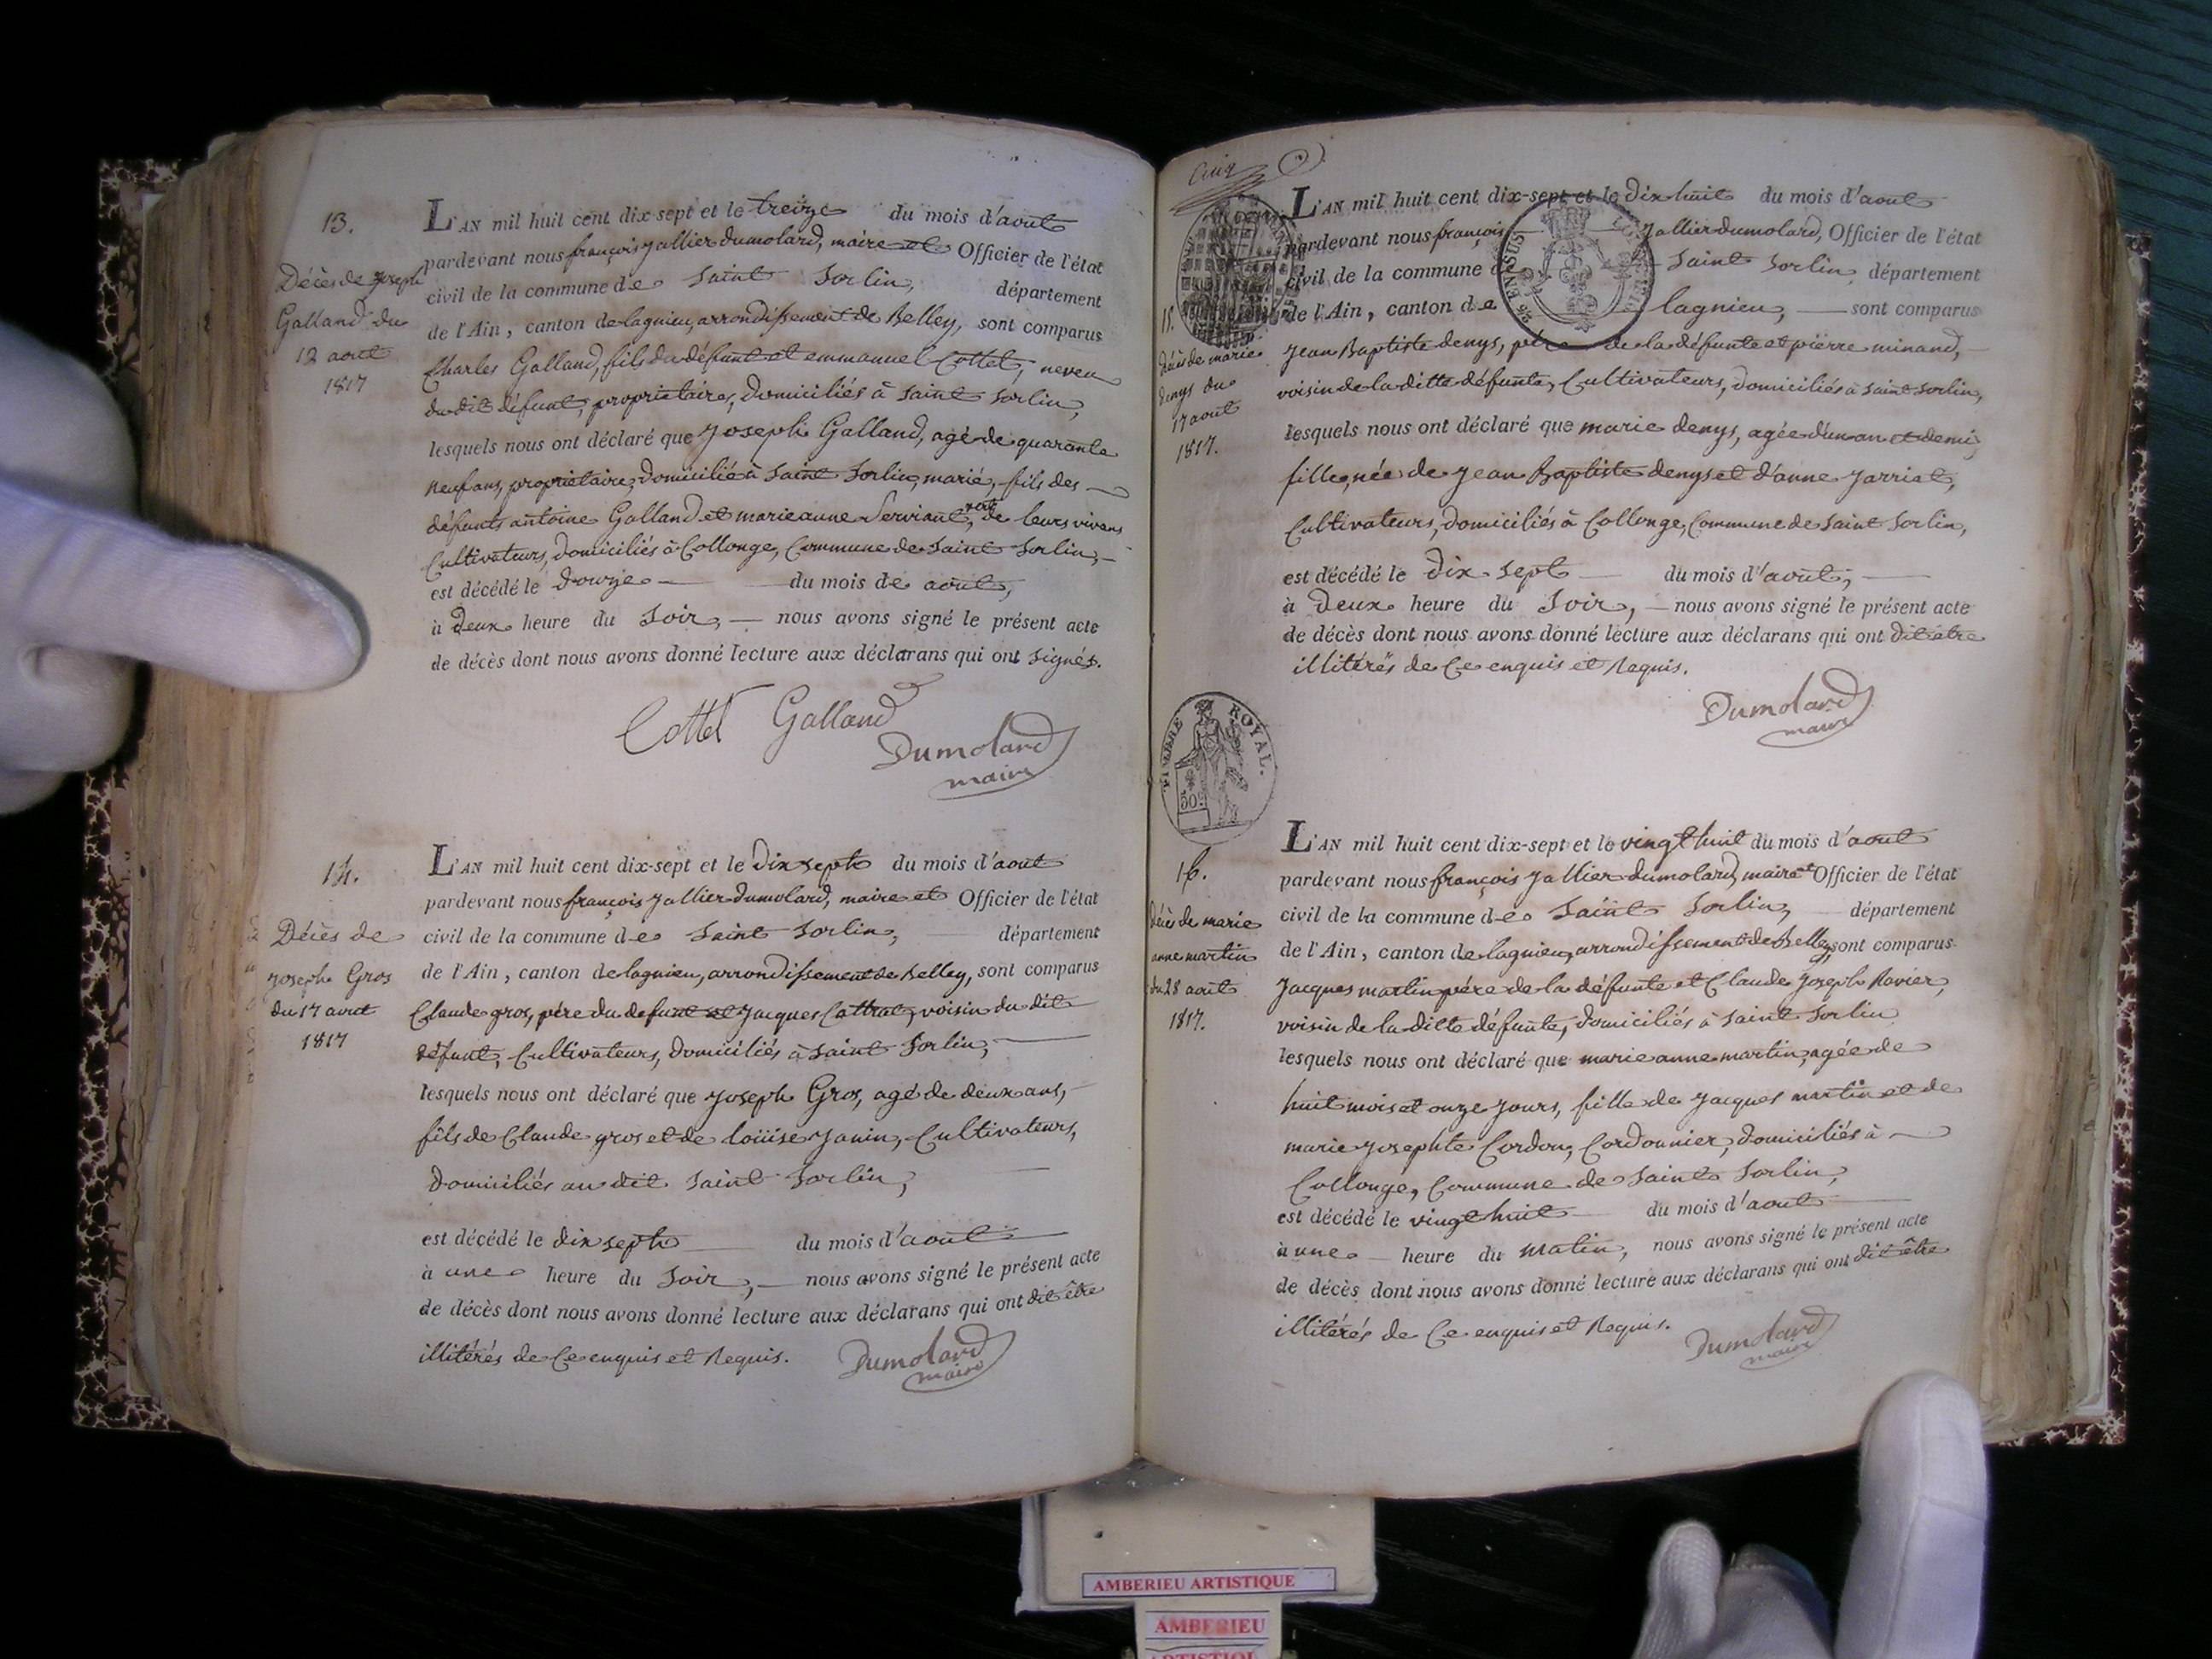 13.
Décès de joseph
Galland du
12 aout
1817
L'AN mil huit cent dix-sept et le treize du mois d'aout
pardevant nous françois jallier dumolard, maire et Officier de l'état
civil de la commune de Saint Sorlin, département
de l'Ain, canton de lagnieu, arrondissement de Belley, sont comparus
Charles Galland, fils du défunt et emmanuel Cottet, neveu
du dit défunt, propriétaires, domiciliés à Saint Sorlin,
lesquels nous ont déclaré que joseph Galland, agé de quarante
neuf ans, propriétaire, domicilié à Saint Sorlin, marié, fils des
défunts antoine Galland et marieanne Serviant, de leurs vivans
Cultivateurs, domiciliés à Collonge, Commune de Saint Sorlin,
est décédé le douze du mois de aout,
à deux heure du Soir, nous avons signé le présent acte
de décès dont nous avons donné lecture aux déclarans qui ont signés.
Cottet Galland
Dumolard
maire
14.
Décès de
joseph Gros
du 17 aout
1817
L'AN mil huit cent dix-sept et le dix sept du mois d'aout
pardevant nous françois jallier dumolard, maire et Officier de l'état
civil de la commune de Saint Sorlin, département
de l'Ain, canton de lagnieu, arrondissement de Belley, sont comparus
Claude gros, père du defunt et jacques Cattrat, voisin du dit
défunt, Cultivateurs, domiciliés à Saint Sorlin,
lesquels nous ont déclaré que joseph Gros, agé de deux ans,
fils de Claude gros et de loüise janin, Cultivateurs,
domiciliés au dit Saint Sorlin,
est décédé le dix sept du mois d'aout
à une heure du Soir, nous avons signé le présent acte
de décès dont nous avons donné lecture aux déclarans qui ont dit être
illitérés de Ce enquis et Requis.
Dumolard
maire
Cinq
15.
décès de marie
denys du
17 aout
1817.
L'AN mil huit cent dix-sept et le dix huit du mois d'aout
pardevant nous françois jallier dumolard, Officier de l'état
civil de la commune de Saint Sorlin, département
de l'Ain, canton de lagnieu, sont comparus
EN SUS
jean Baptiste denys, père de la défunte et pierre minand,
voisin de la ditte défunte, Cultivateurs, domiciliés à Saint Sorlin,
lesquels nous ont déclaré que marie denys, agée d'un an et demi,
fille, née de jean Baptiste denys et d'anne jarriat,
Cultivateurs, domiciliés à Collonge, Commune de Saint Sorlin,
est décédé le dix sept du mois d'aout,
à deux heure du Soir, nous avons signé le présent acte
de décès dont nous avons donné lecture aux déclarans qui ont dit être
illitérés de Ce enquis et Requis.
Dumolard
maire
TIMBRE ROYAL.
50c
16.
décès de marie
anne martin
du 28 aout
1817.
L'AN mil huit cent dix-sept et le vingt huit du mois d'aout
pardevant nous françois jallier dumolard, maire et Officier de l'état
civil de la commune de Saint Sorlin, département
de l'Ain, canton de lagnieu, arrondissement de Belley, sont comparus
jacques martin père de la défunte et Claude joseph Ravier,
voisin de la ditte défunte, domiciliés à Saint Sorlin
lesquels nous ont déclaré que marie anne martin, agée de
huit mois et onze jours, fille de jacques martin et de
marie josephte Cordon, Cordonnier, domiciliés à
Collonge, Commune de Saint Sorlin,
est décédé le vingt huit du mois d'aout
à une heure du matin, nous avons signé le présent acte
de décès dont nous avons donné lecture aux déclarans qui ont dit être
illitérés de Ce enquis et Requis.
Dumolard
maire
AMBERIEU ARTISTIQUE
AMBERIEU
ARTISTIQUE